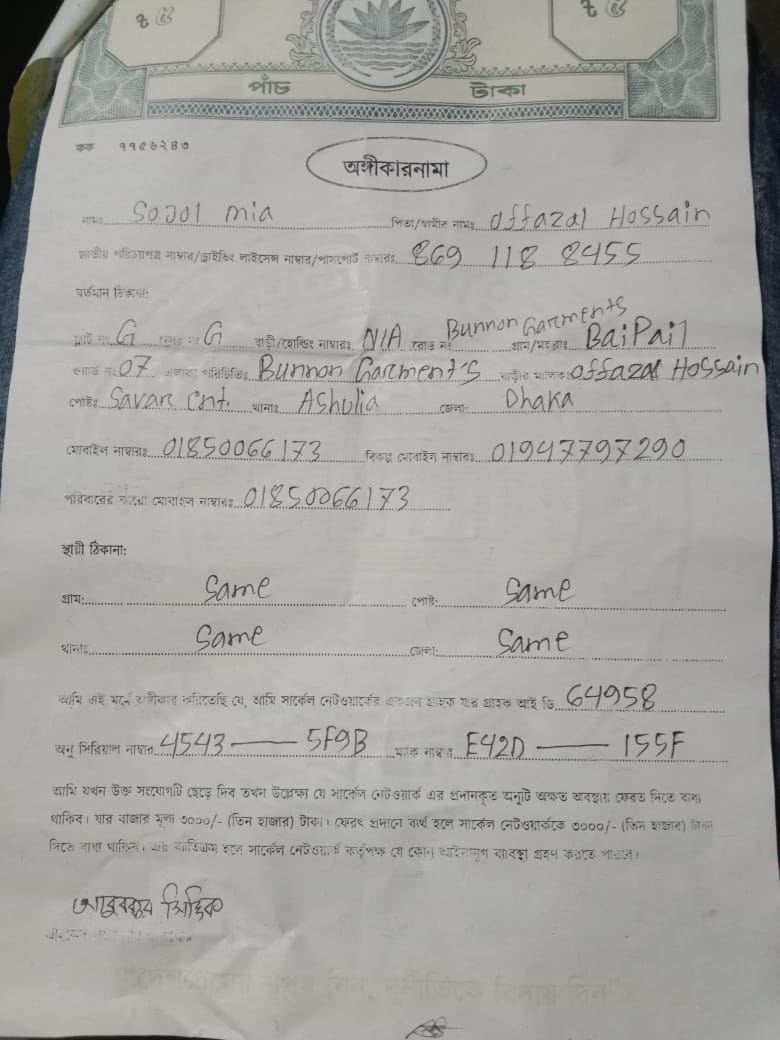 ৳ ৫ ৳ ৫
পাঁচ টাকা
কক ৭৭৫৬২৪৩
অঙ্গীকারনামা
নামঃ Sojol mia পিতা/স্বামীর নামঃ Offazal Hossain
জাতীয় পরিচয়পত্র নাম্বার/ড্রাইভিং লাইসেন্স নাম্বার/পাসপোর্ট নাম্বারঃ 869 118 8455
বর্তমান ঠিকানা:
ফ্লাট নং G নং G বাড়ী/হোল্ডিং নাম্বারঃ N/A রোড নং Bunnon Garments গ্রাম/মহল্লাঃ BaiPail
ওয়ার্ড নং 07 এলাকা পরিচিতিঃ Bunnon Garment's বাড়ীর মালিকঃ Offazal Hossain
পোষ্টঃ Savar Cnt. থানাঃ Ashulia জেলা: Dhaka
মোবাইল নাম্বারঃ 01850066173 বিকল্প মোবাইল নাম্বারঃ 01947797290
পরিবারের কারো মোবাইল নাম্বারঃ 01850066173
স্থায়ী ঠিকানা:
গ্রাম: Same পোষ্ট: Same
থানাঃ Same জেলা: Same
আমি এই মর্মে অঙ্গীকার করিতেছি যে, আমি সার্কেল নেটওয়ার্কের একজন গ্রাহক যার গ্রাহক আই ডি 64958
অনু সিরিয়াল নাম্বার 4543 — 5F9B ম্যাক নাম্বার E42D — 155F
আমি যখন উক্ত সংযোগটি ছেড়ে দিব তখন উল্লেক্ষ্য যে সার্কেল নেটওয়ার্ক এর প্রদানকৃত অনুটি অক্ষত অবস্থায় ফেরত দিতে বাধ্য
থাকিব। যার বাজার মূল্য ৩০০০/- (তিন হাজার) টাকা। ফেরৎ প্রদানে ব্যর্থ হলে সার্কেল নেটওয়ার্ককে ৩০০০/- (তিন হাজার) টাকা
দিতে বাধ্য থাকিব। এর ব্যতিক্রম হলে সার্কেল নেটওয়ার্ক কর্তৃপক্ষ যে কোন আইনানুগ ব্যবস্থা গ্রহণ করতে পারবে।
আবুবকর সিদ্দিক
"দেশপ্রেমের শপথ নিন, দুর্নীতিকে বিদায় দিন"